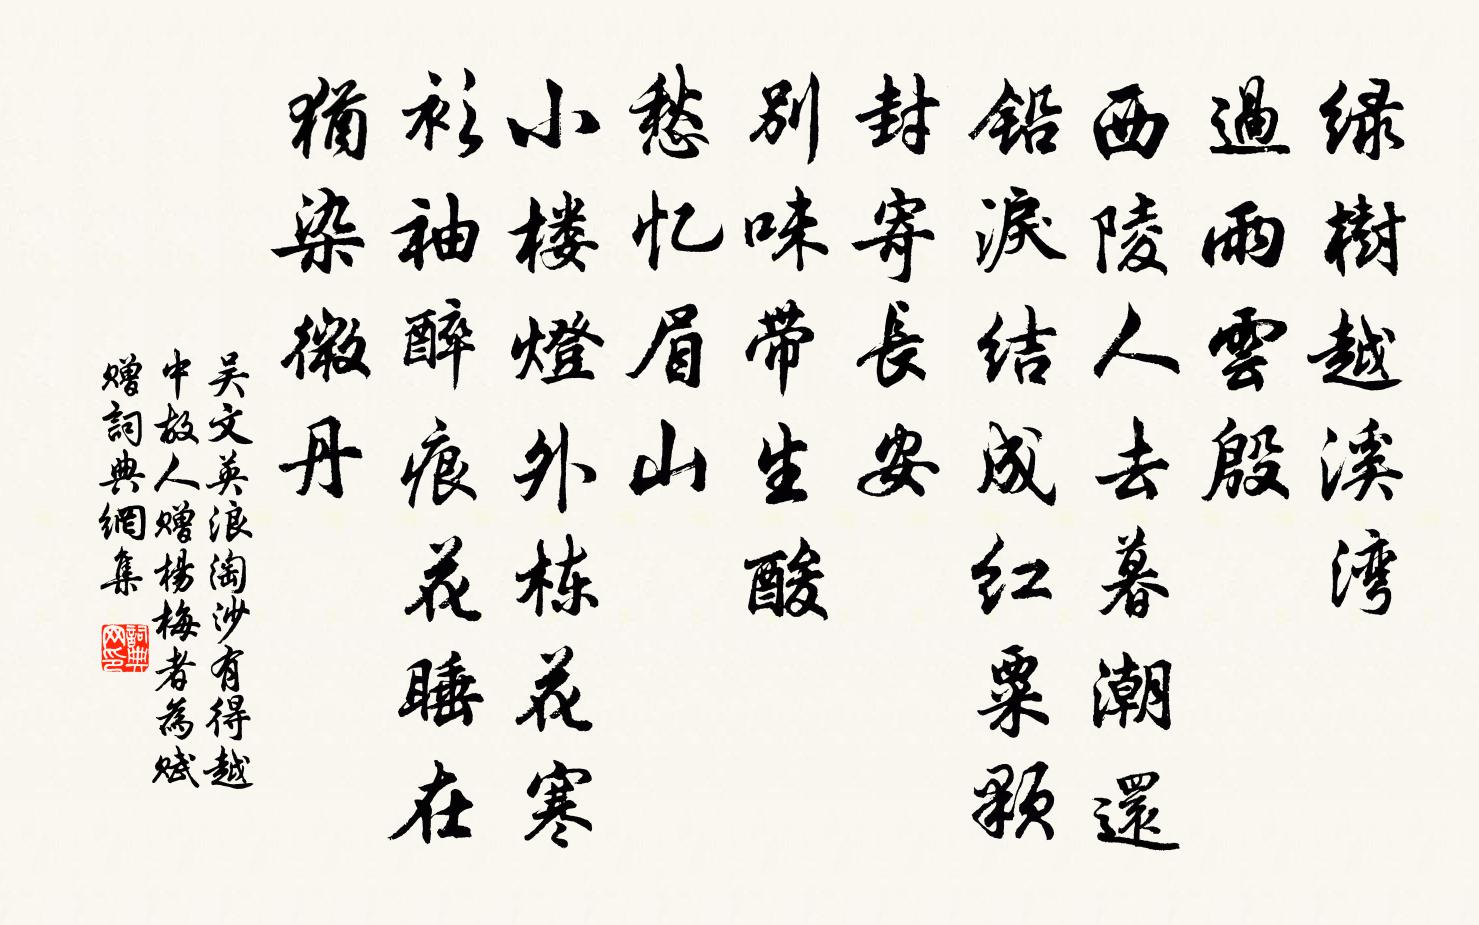 绿樹越溪湾
過雨雲殷
西陵人去暮潮還
铅淚结成红粟颗
封寄長安
别味带生酸
愁忆眉山
小楼燈外栋花寒
衫袖醉痕花睡在
猶染微丹
吴文英浪淘沙有得越
中故人赠楊梅者為赋
赠詞典網集
詞典网印